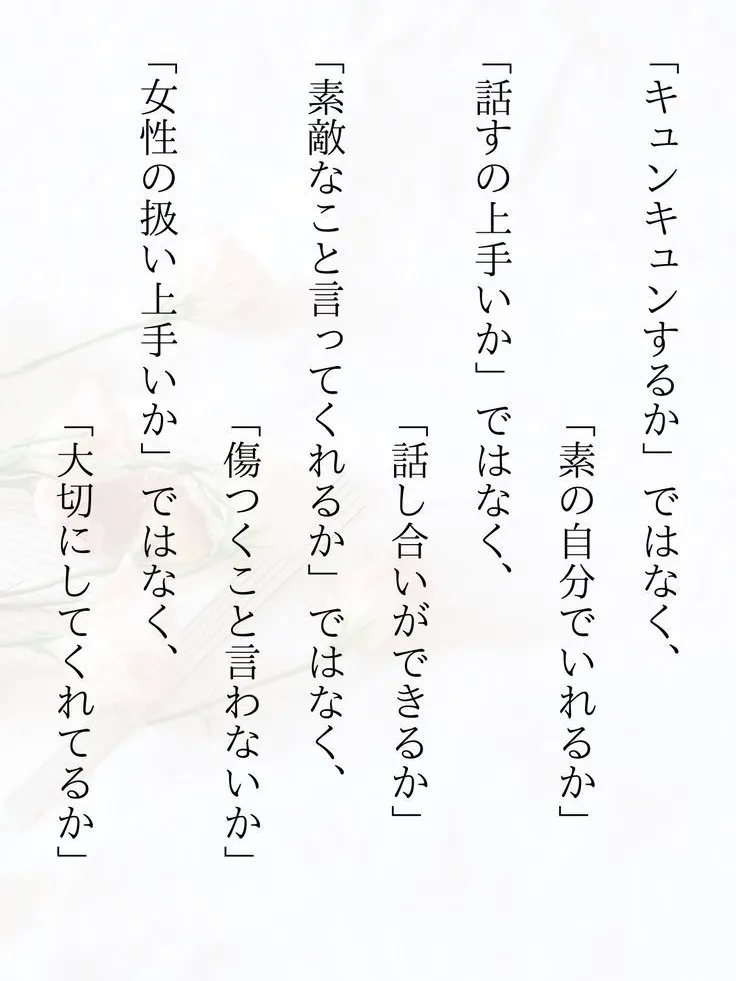 「キュンキュンするか」ではなく、
「素の自分でいれるか」
「話すの上手いか」ではなく、
「話し合いができるか」
「素敵なこと言ってくれるか」ではなく、
「傷つくこと言わないか」
「女性の扱い上手いか」ではなく、
「大切にしてくれてるか」